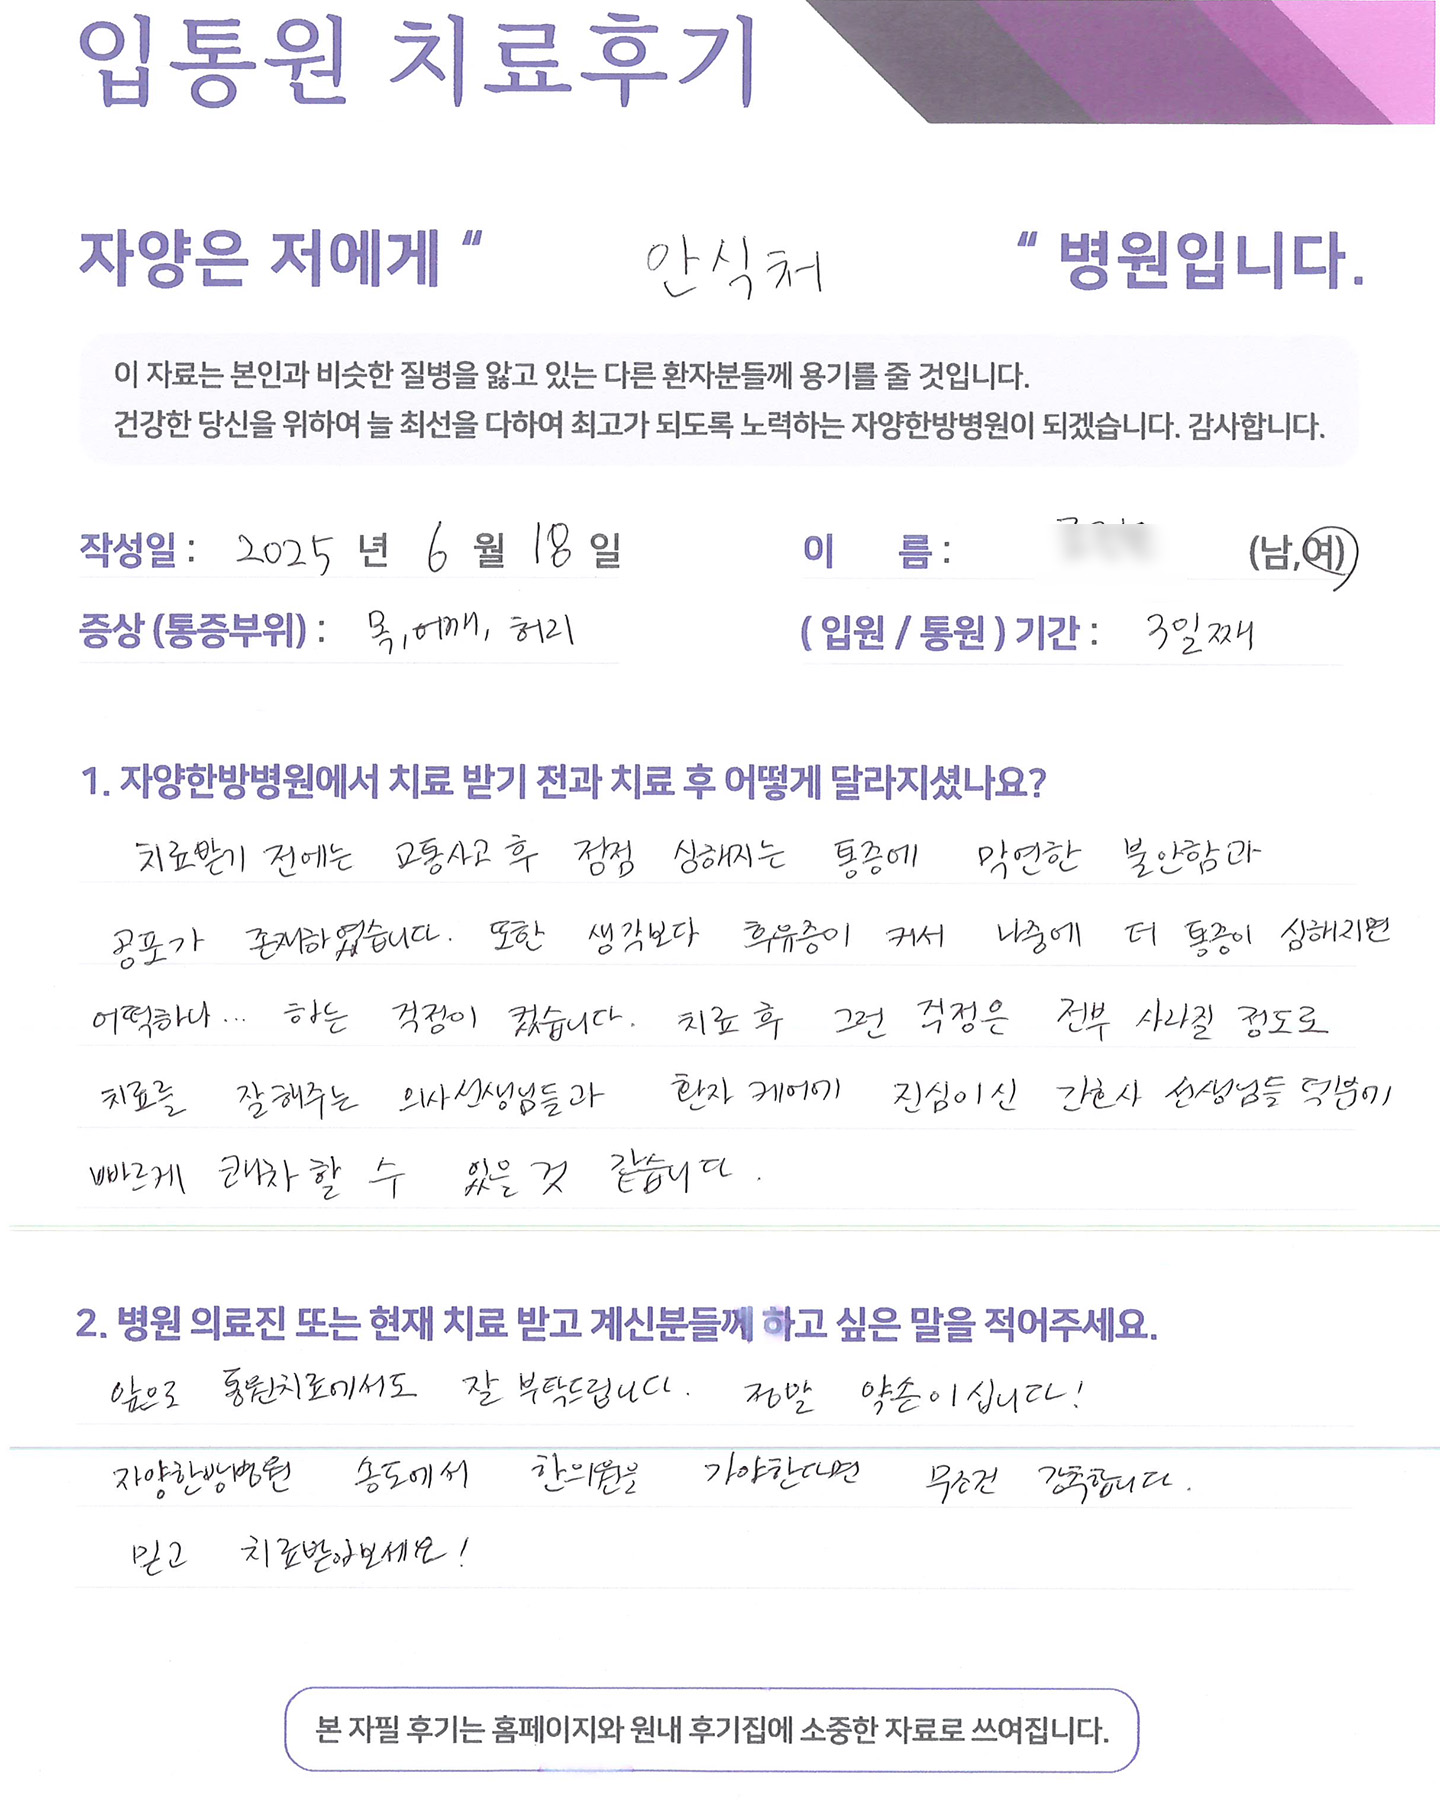 입통원 치료후기
자양은 저에게 " 안식처 " 병원입니다.
이 자료는 본인과 비슷한 질병을 앓고 있는 다른 환자분들께 용기를 줄 것입니다.
건강한 당신을 위하여 늘 최선을 다하여 최고가 되도록 노력하는 자양한방병원이 되겠습니다. 감사합니다.
작성일 : 2025 년 6 월 18 일 이 름 : (남,여)
증상 (통증부위) : 목, 어깨, 허리 ( 입원 / 통원 ) 기간 : 3일째
1. 자양한방병원에서 치료 받기 전과 치료 후 어떻게 달라지셨나요?
치료받기 전에는 교통사고 후 점점 심해지는 통증에 막연한 불안함과
공포가 존재하였습니다. 또한 생각보다 후유증이 커서 나중에 더 통증이 심해지면
어떡하나... 하는 걱정이 컸습니다. 치료 후 그런 걱정은 전부 사라질 정도로
치료를 잘해주는 의사선생님들과 환자 케어에 진심이신 간호사 선생님들 덕분에
빠르게 쾌차할 수 있을 것 같습니다.
2. 병원 의료진 또는 현재 치료 받고 계신분들께 하고 싶은 말을 적어주세요.
앞으로 통원치료에서도 잘 부탁드립니다. 정말 약손이십니다!
자양한방병원 송도에서 한의원을 가야한다면 무조건 강추합니다.
믿고 치료받아보세요!
본 자필 후기는 홈페이지와 원내 후기집에 소중한 자료로 쓰여집니다.